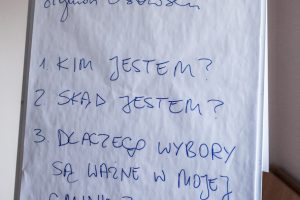 1 KIM JESTEM?
2 SKĄD JESTEM?
3. DLACZEGO WYBORY
SĄ WAŻNE W MOJEJ